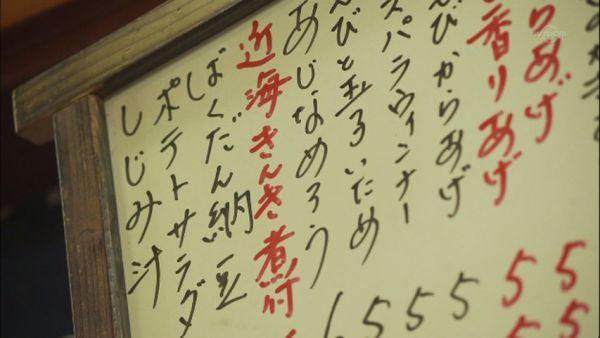 りあげ 55
香りあげ 55
びからあげ 5
スパラウィンナー 5
えびと玉子いため 5
あじなめろう
近海きんき煮付
ばくだん納豆
ポテトサラダ
しじみ汁